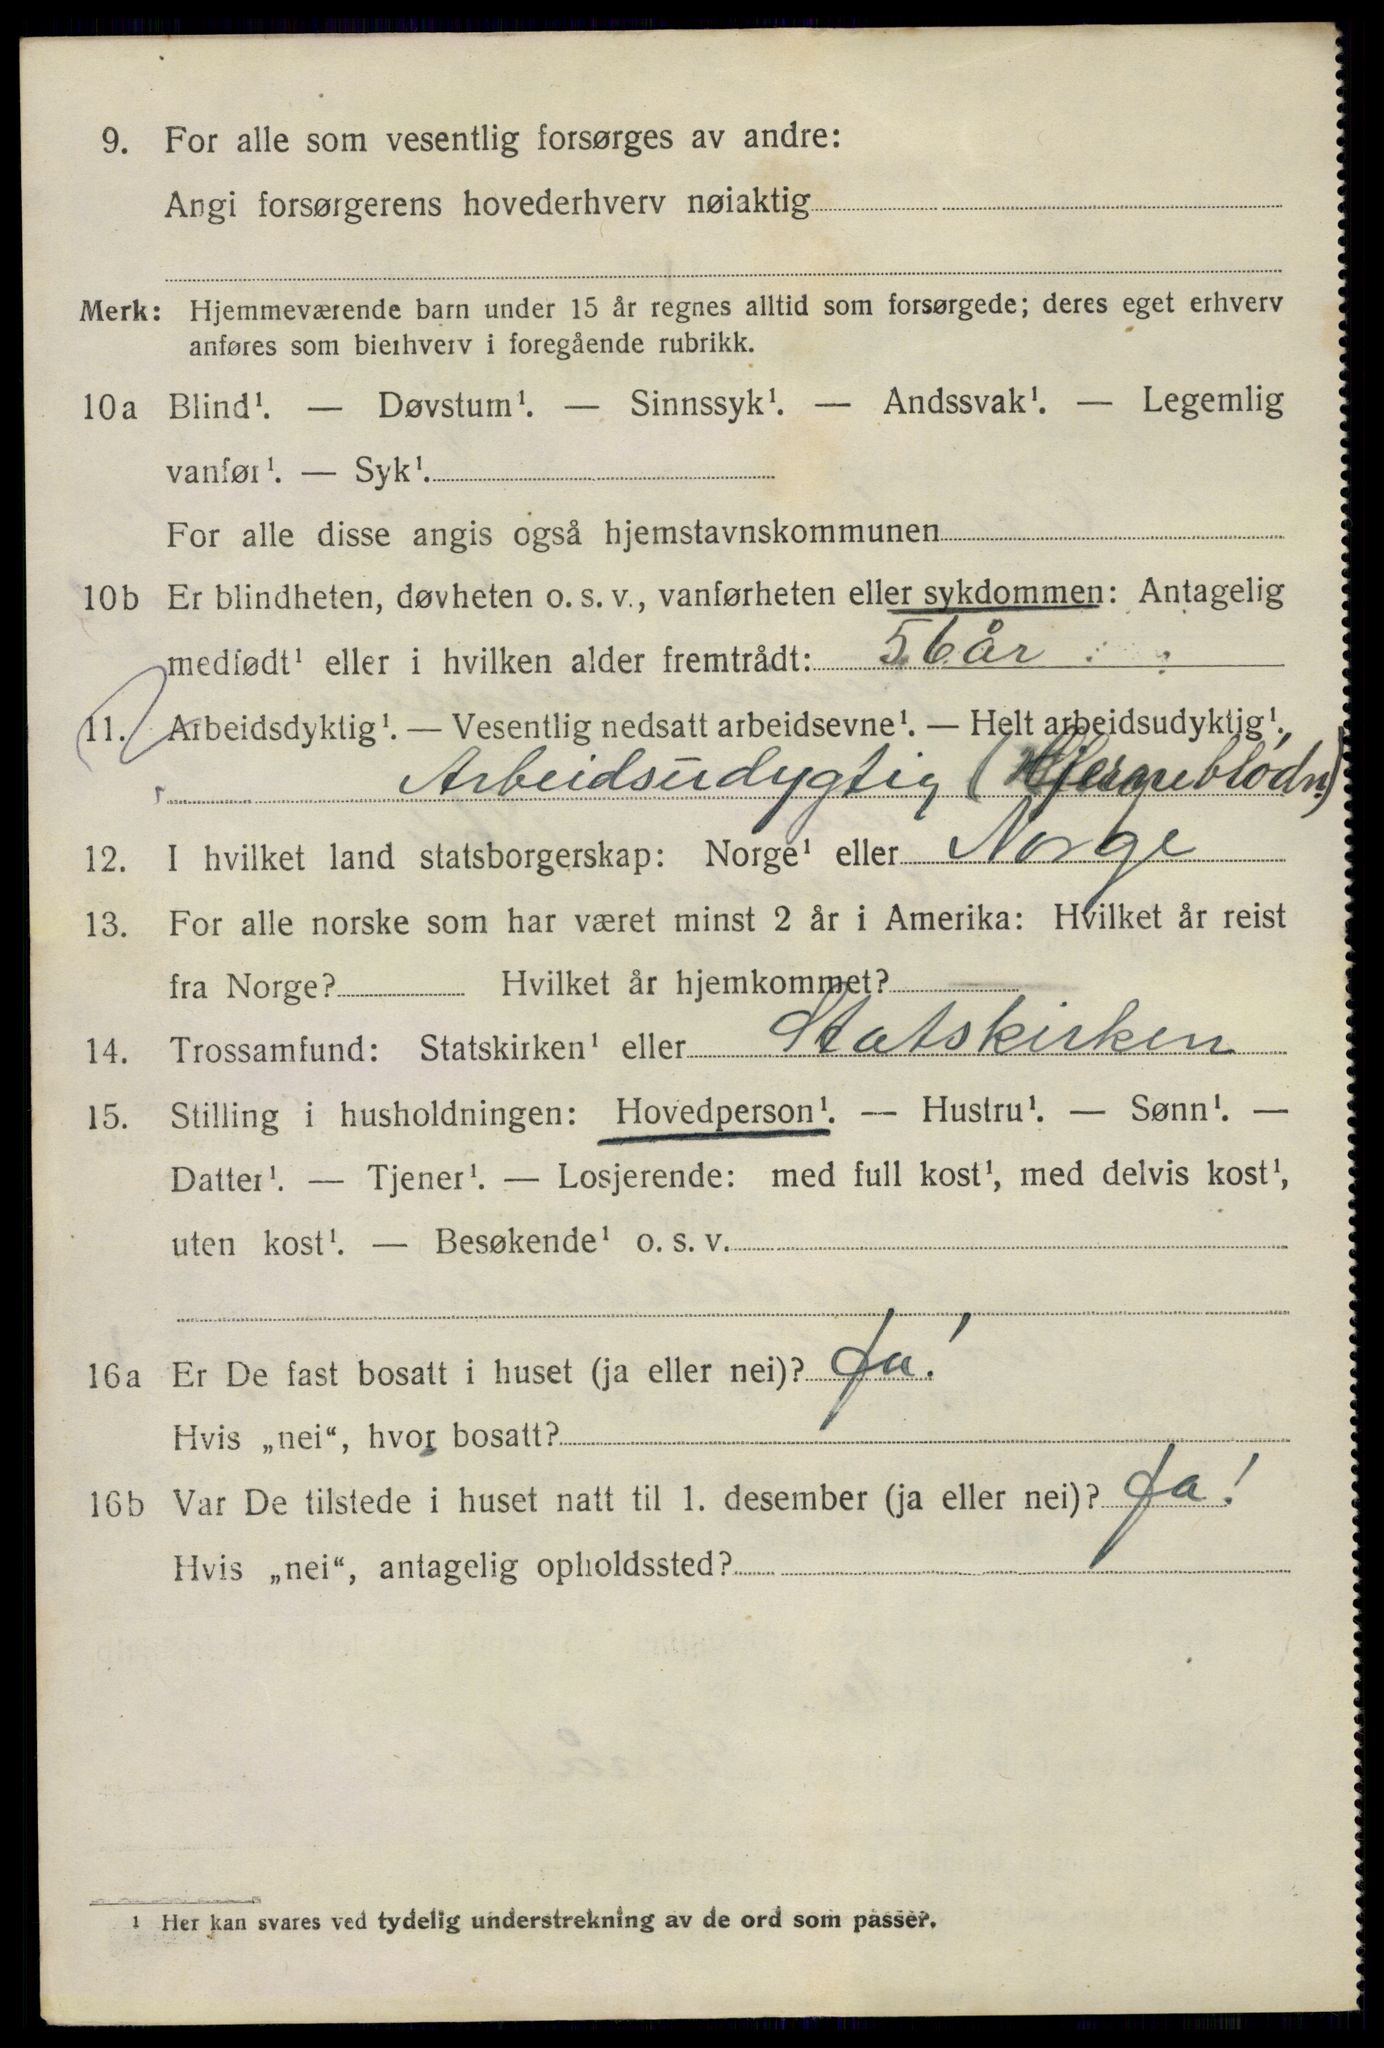 9. For alle som vesentlig forsørges av andre:
Angi forsørgerens hovederhverv nøiaktig
Merk: Hjemmeværende barn under 15 år regnes alltid som forsørgede; deres eget erhverv
anføres som bierhverv i foregående rubrikk.
10a Blind¹. — Døvstum¹. — Sinnssyk¹. — Andssvak¹. — Legemlig
vanfør¹. — Syk¹.
For alle disse angis også hjemstavnskommunen
10b Er blindheten, døvheten o. s. v., vanførheten eller sykdommen: Antagelig
medfødt¹ eller i hvilken alder fremtrådt: 56 år
11. Arbeidsdyktig¹. — Vesentlig nedsatt arbeidsevne¹. — Helt arbeidsudyktig¹.
Arbeidsudygtig (Hjerneblødn.)
12. I hvilket land statsborgerskap: Norge¹ eller Norge
13. For alle norske som har været minst 2 år i Amerika: Hvilket år reist
fra Norge? Hvilket år hjemkommet?
14. Trossamfund: Statskirken¹ eller Statskirken
15. Stilling i husholdningen: Hovedperson¹. — Hustru¹. — Sønn¹. —
Datter¹. — Tjener¹. — Losjerende: med full kost¹, med delvis kost¹,
uten kost¹. — Besøkende¹ o. s. v.
16a Er De fast bosatt i huset (ja eller nei)? Ja!
Hvis „nei“, hvor bosatt?
16b Var De tilstede i huset natt til 1. desember (ja eller nei)? Ja!
Hvis „nei“, antagelig opholdssted?
¹ Her kan svares ved tydelig understrekning av de ord som passer.